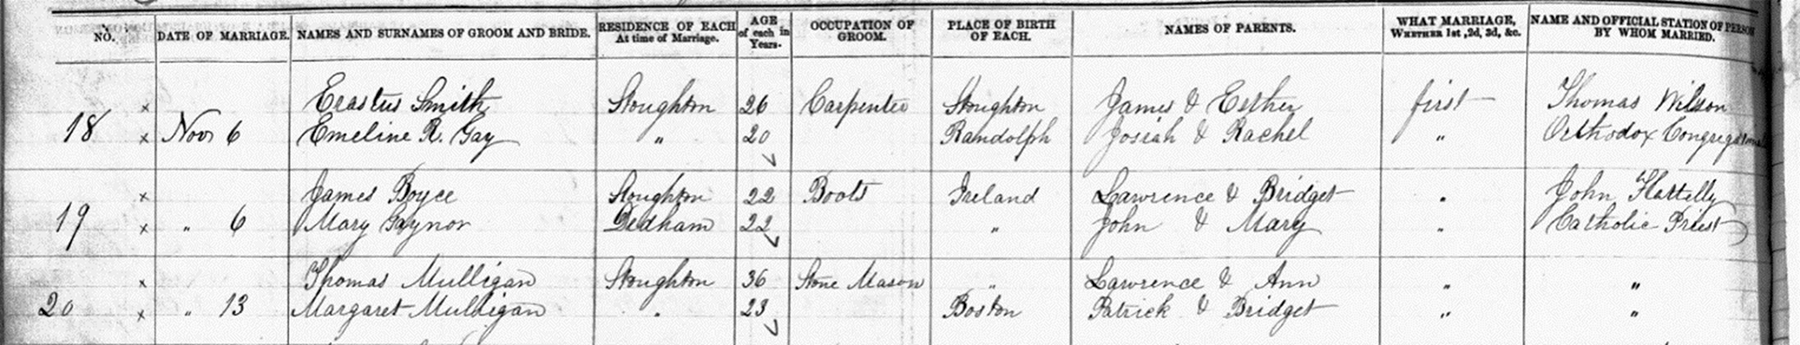 NO. DATE OF MARRIAGE. NAMES AND SURNAMES OF GROOM AND BRIDE. RESIDENCE OF EACH At time of Marriage. AGE of each in Years. OCCUPATION OF GROOM. PLACE OF BIRTH OF EACH. NAMES OF PARENTS. WHAT MARRIAGE, WHETHER 1st, 2d, 3d, &c. NAME AND OFFICIAL STATION OF PERSON BY WHOM MARRIED.
x Erastus Smith Stoughton 26 Carpenter Stoughton James & Esther first Thomas Wilson
18 x Nov 6 Emeline R. Gay " 20 Randolph Josiah & Rachel " Orthodox
x James Boyce Stoughton 22 Boots Ireland Lawrence & Bridget " John Flattelly
19 x " 6 Mary Gaynor Dedham 22 " John & Mary " Catholic Priest
x Thomas Mulligan Stoughton 36 Stone Mason " Lawrence & Ann " "
20 x " 13 Margaret Mulligan " 23 Boston Patrick & Bridget " "